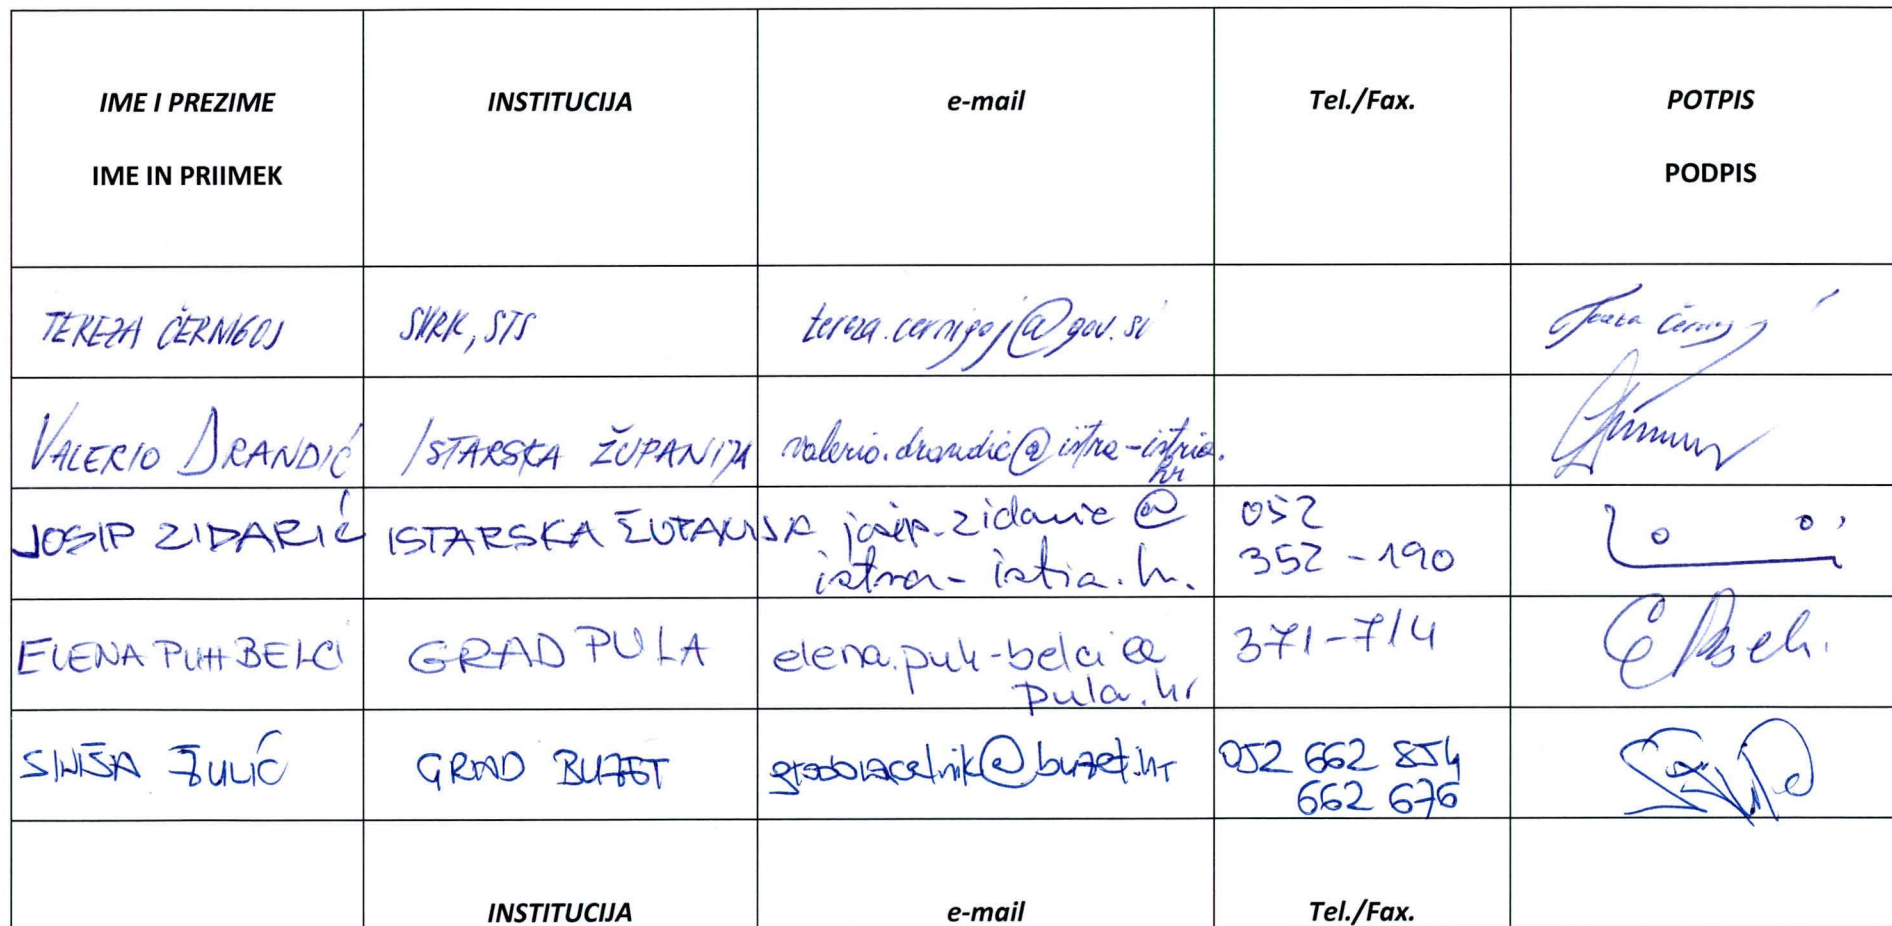 IME I PREZIME
IME IN PRIIMEK
INSTITUCIJA
e-mail
Tel./Fax.
POTPIS
PODPIS
TEREZA ČERNIGOJ
SVRK, STS
tereza.cernigoj@gov.si
Tereza Černigoj
VALERIO DRANDIĆ
ISTARSKA ŽUPANIJA
valerio.drandic@istra-istria.
hr
JOSIP ZIDARIĆ
ISTARSKA ŽUPANIJA
josip.zidaric@
istra-istria.hr.
052
352-190
ELENA PUH BELCI
GRAD PULA
elena.puh-belci@
pula.hr
371-714
SINIŠA ŽULIĆ
GRAD BUZET
gradonacelnik@buzet.hr
052 662 854
662 676
INSTITUCIJA
e-mail
Tel./Fax.